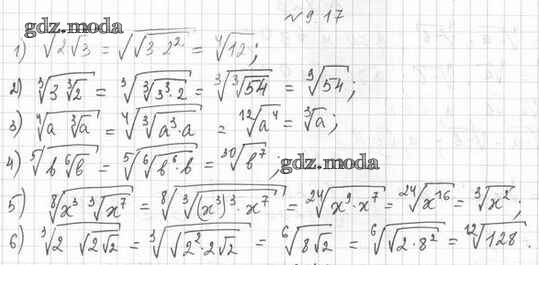 №9.17
gdz.moda
1) √(2√3) = √(√(3·2²)) = ⁴√12;
2) ³√(3 ³√2) = ³√(³√(3³·2)) = ³√(³√54) = ⁹√54;
3) ⁴√(a ³√a) = ⁴√(³√(a³·a)) = ¹²√(a⁴) = ³√a;
4) ⁵√(b ⁶√b) = ⁵√(⁶√(b⁶·b)) = ³⁰√(b⁷);
gdz.moda
5) ⁸√(x³ ³√(x⁷)) = ⁸√(³√((x³)³·x⁷)) = ²⁴√(x⁹·x⁷) = ²⁴√(x¹⁶) = ³√(x²);
6) ³√(2 √(2√2)) = ³√(√(2²·2√2)) = ⁶√(8√2) = ⁶√(√(2·8²)) = ¹²√128.